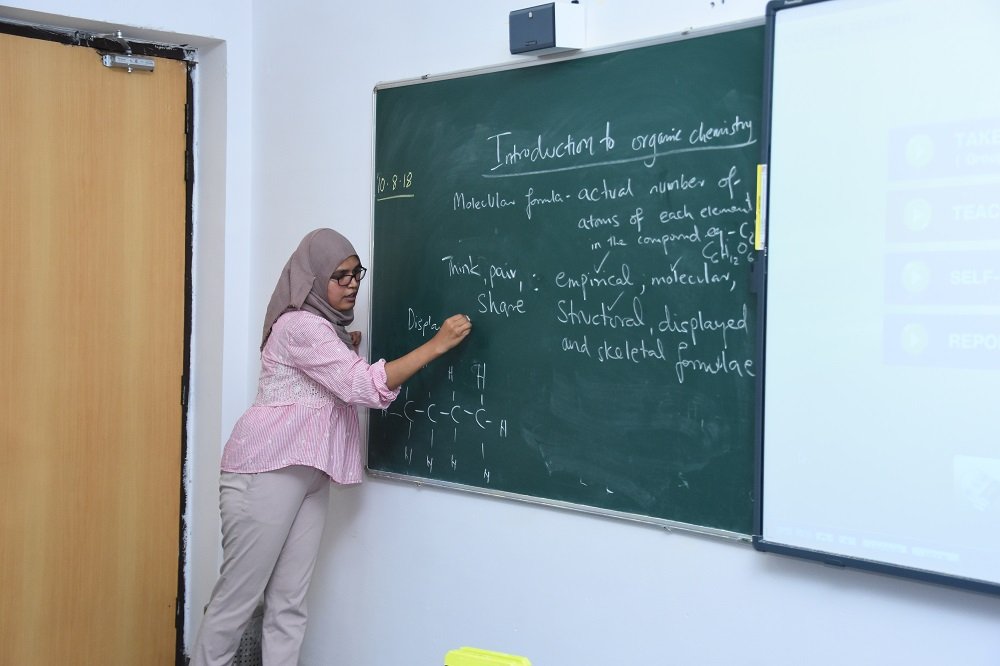 Introduction to organic chemistry
10.8.18
Molecular formula - actual number of
atoms of each element
in the compound eg - C₂
C₆H₁₂O₆
Think, pair, : empirical, molecular,
Share Structural, displayed
and skeletal formulae
Displa
H H
H - C - C - C - C - H
H H H H
TAKE
TEAC
SELF-
REPO